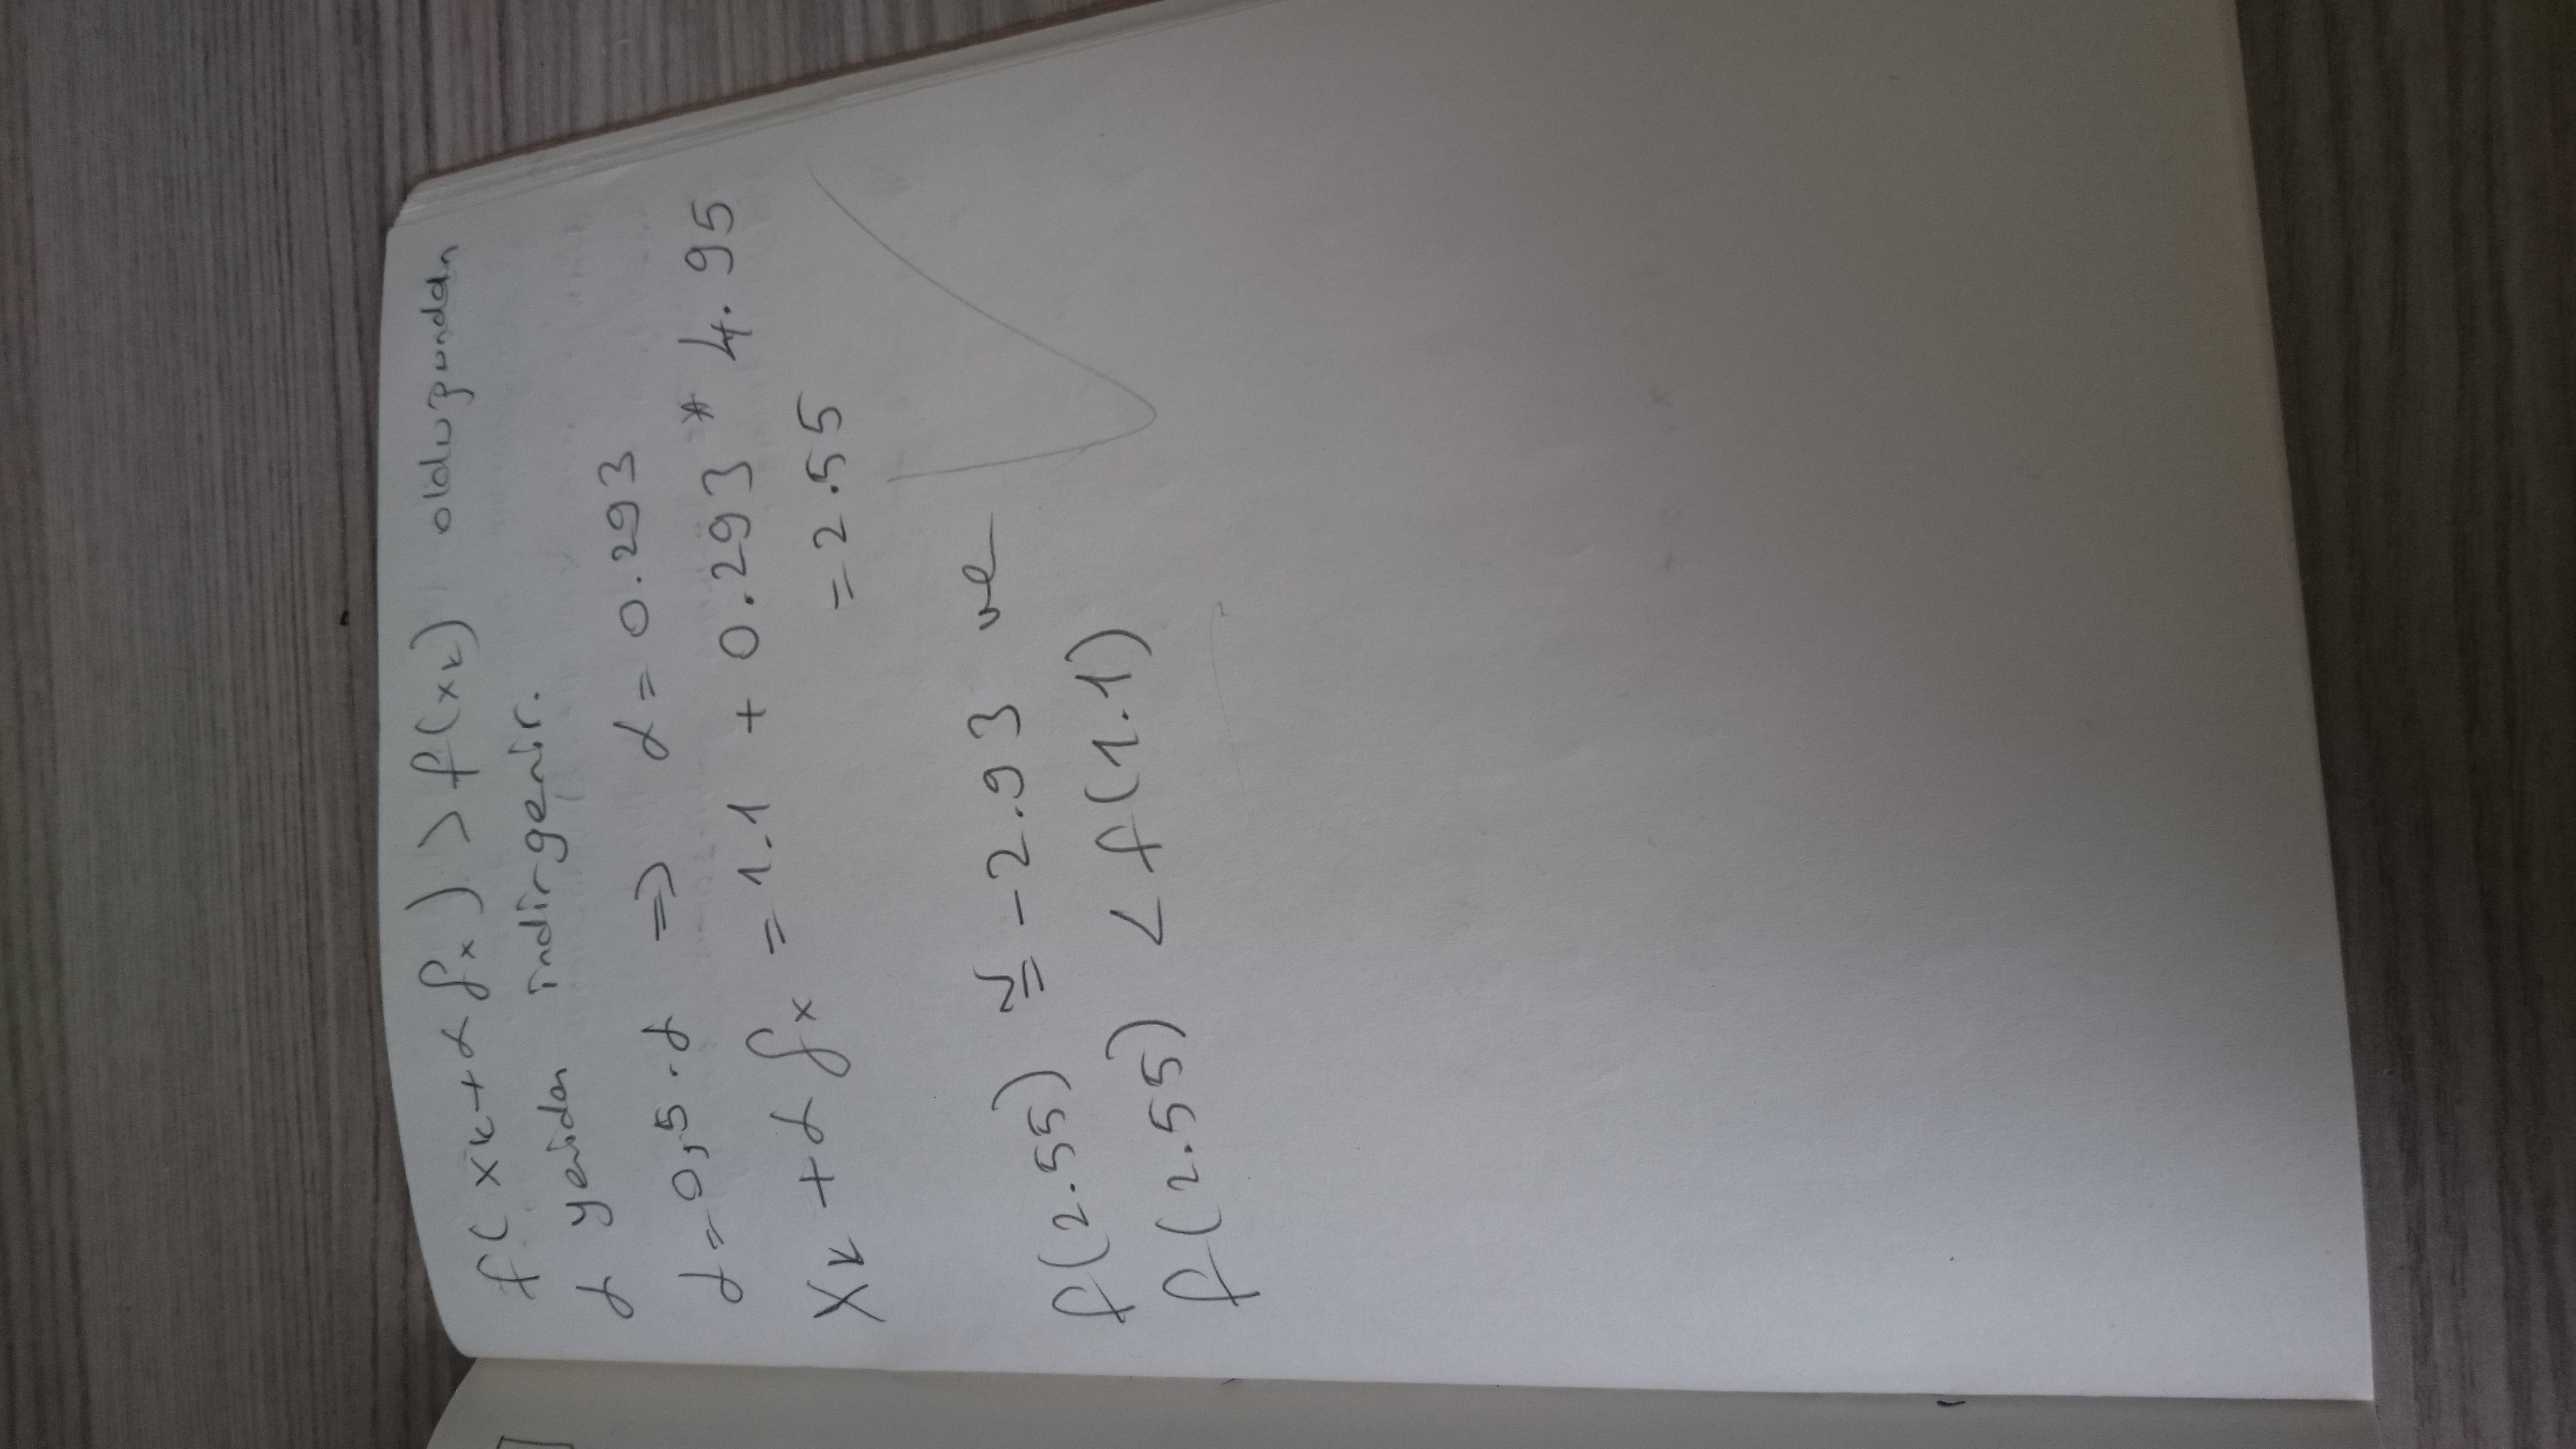 f(xk+αfx) > f(xk) olduğundan
α yeniden indirgenir.
α=0,5.α => α=0.293
Xk+αfx = 1.1 + 0.293*4.95
=2.55
f(2.55) ≅ -2.93 ve
f(2.55) < f(1.1)